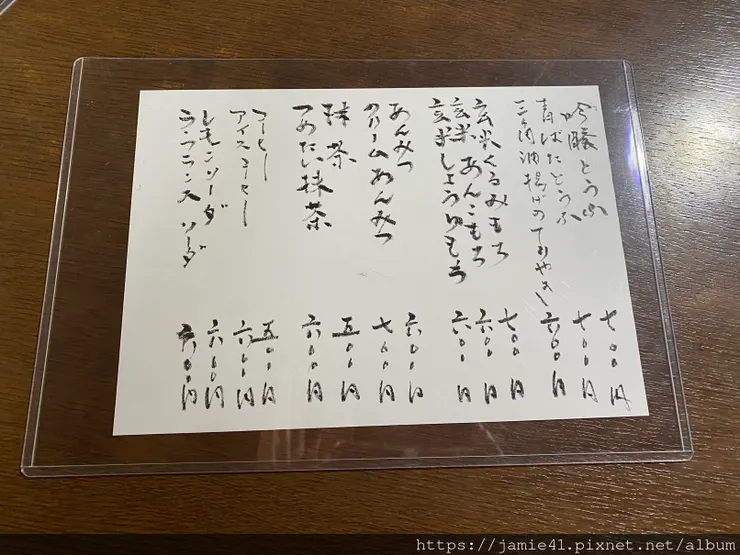 吟醸とうふ 七〇〇円
青ばたとうふ 七〇〇円
三角油揚げのてりやき 六〇〇円
玄米くるみもち 七〇〇円
玄米あんこもち 六〇〇円
玄米しょうゆもち 六〇〇円
あんみつ 六〇〇円
クリームあんみつ 七〇〇円
抹茶 五〇〇円
つめたい抹茶 六〇〇円
コーヒー 五〇〇円
アイスコーヒー 六〇〇円
レモンソーダ 六〇〇円
ラ・フランスソーダ 六〇〇円
https://jamie41.pixnet.net/album